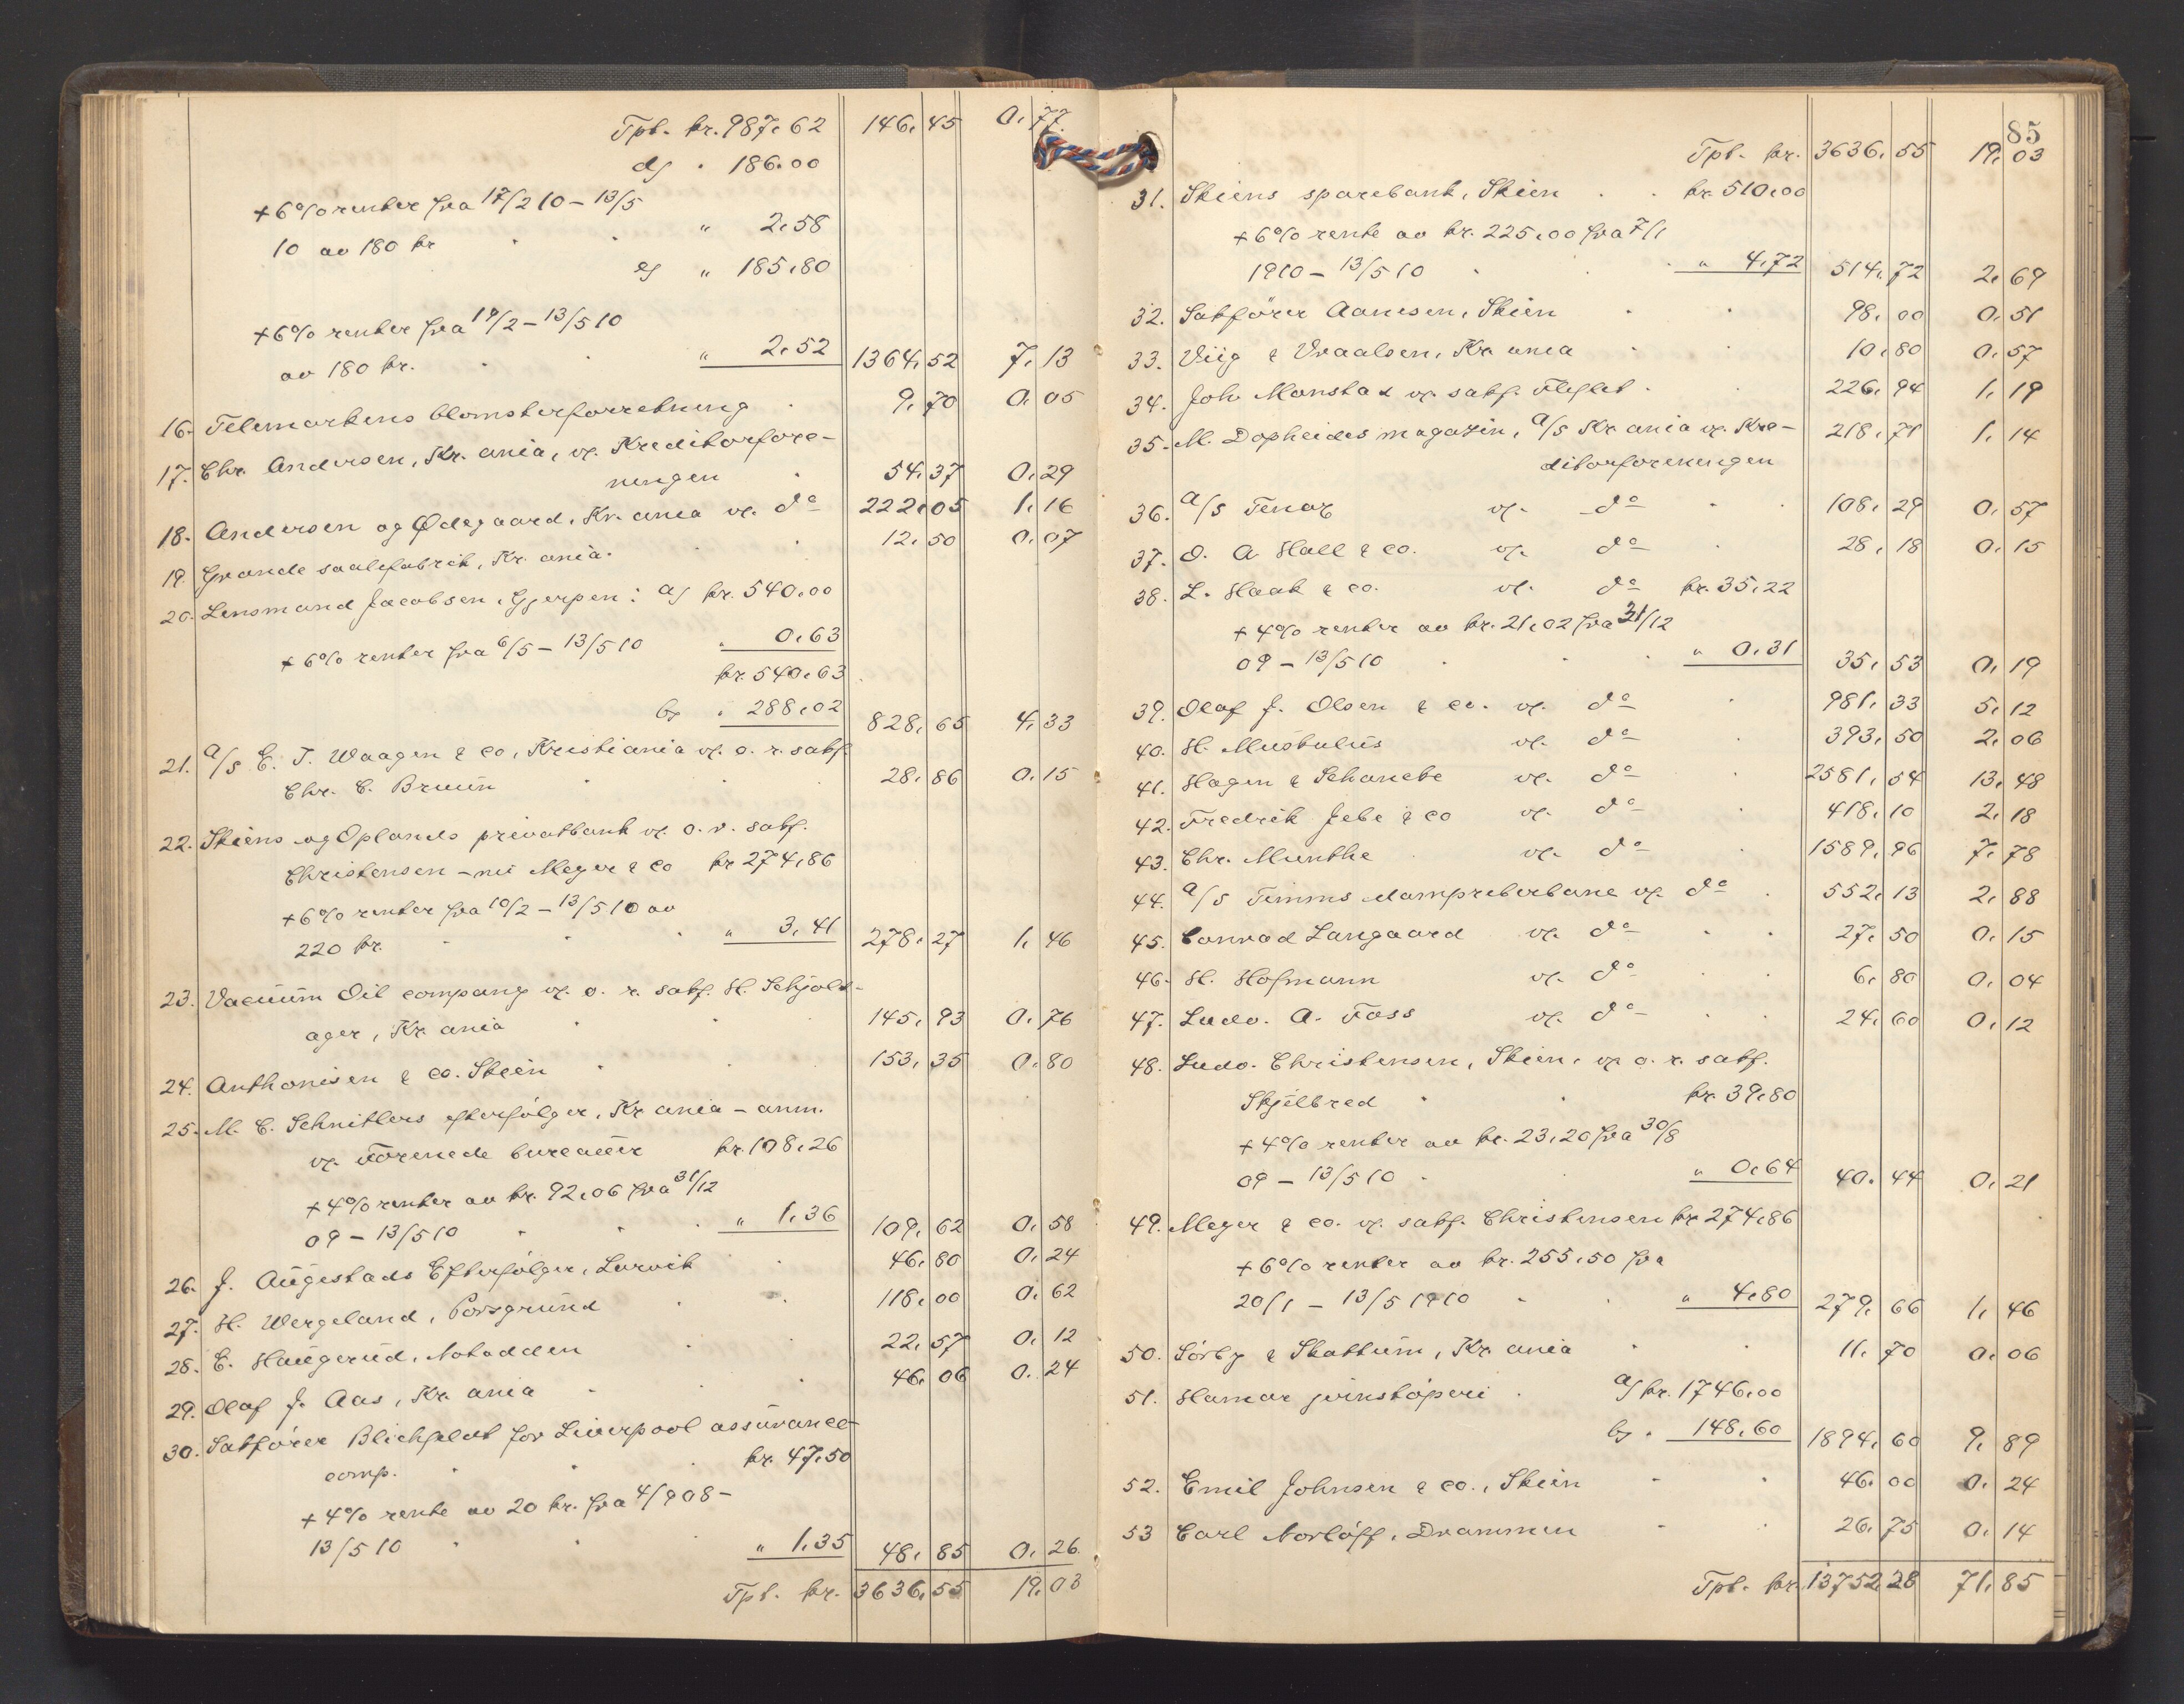 Tpt. kr. 987,62 146,45 0,77
d) " 186.00
+ 6% renter fra 17/2 10 – 13/5
10 av 180 kr " 2,58
e) " 185,80
+ 6% renter fra 19/2 – 13/5 10
av 180 kr. " 2,52 1364,52 7,13
16. Telemarkens blomsterforretning 9,70 0,05
17. Chr. Andersen, Kr.ania, v. Kreditorfore-
ningen 54,37 0,29
18. Andersen og Ødegaard, Kr.ania v. do 222,05 1,16
19. Grande saalefabrik, Kr.ania. 12,50 0,07
20. Lensmand Jacobsen, Gjerpen: a) kr. 540,00
+ 6% renter fra 6/5 – 13/5 10 " 0,63
kr. 540,63
b) " 288,02 828,65 4,33
21. A/S E. T. Waagen & co, Kristiania v. o. r. sakf.
Chr. C. Bruun 28,86 0,15
22. Skiens og Oplands privatbank v. o. r. sakf.
Christensen – nu Meyer & co kr 274,86
+ 6% renter fra 10/2 – 13/5 10 av
220 kr. " 3,41 278,27 1,46
23. Vacuum Oil company v. o. r. sakf. H. Schjold-
ager, Kr.ania 145,93 0,76
24. Anthonisen & co. Skien 153,35 0,80
25. M. C. Schnitlers efterfølger, Kr.ania – anm.
v. Forenede bureauer kr. 108,26
+ 4% renter av kr. 92,06 fra 31/12
09 – 13/5 10 " 1,36 109,62 0,58
26. J. Augestads Efterfølger, Larvik 46,80 0,24
27. H. Wergeland, Porsgrund 118,00 0,62
28. E. Haugerud, Notodden 22,57 0,12
29. Olaf J. Aas, Kr.ania 46,06 0,24
30. Sakfører Blichfeldt for Liverpool assurance-
comp. kr. 47,50
+ 4% rente av 20 kr. fra 4/9 08 –
13/5 10 " 1,35 48,85 0,26
Tpt. kr. 3636,55 19,03
85
Tpt. kr. 3636,55 19,03
31. Skiens sparebank, Skien kr. 510,00
+ 6% rente av kr. 225,00 fra 7/1
1910 – 13/5 10 " 4,72 514,72 2,69
32. Sakfører Aanesen, Skien 98,00 0,51
33. Viig & Vraalsen, Kr.ania 10,80 0,57
34. Joh Monstad v. sakf. Fleflet 226,94 1,19
35. M. Dopheides magazin, A/S Kr.ania v. Kre-
ditorforeningen 218,71 1,14
36. A/S Tenax v. do 108,29 0,57
37. O. A. Hall & co. v. do 28,18 0,15
38. L. Haak & co. v. do kr. 35,22
+ 4% renter av kr. 21,02 fra 31/12
09 – 13/5 10 " 0,31 35,53 0,19
39. Olaf J. Olsen & co. v. do 981,33 5,12
40. H. Muskulus v. do 393,50 2,06
41. Hagen & Schanche v. do 2581,54 13,48
42. Fredrik Jebe & co v. do 418,10 2,18
43. Chr. Munthe v. do 1589,96 7,78
44. A/S Timms dampreberbane v. do 552,13 2,88
45. Conrad Langaard v. do 27,50 0,15
46. H. Hofmann v. do 6,80 0,04
47. Ludv. A. Foss v. do 24,60 0,12
48. Ludv. Christensen, Skien, v. o. r. sakf.
Skjelbred kr. 39,80
+ 4% renter av kr. 23,20 fra 30/8
09 – 13/5 10 " 0,64 40,44 0,21
49. Meyer & co. v. sakf. Christensen kr. 274,86
+ 6% renter av kr. 255,50 fra
20/1 – 13/5 1910 " 4,80 279,66 1,46
50. Sörby & Skattum, Kr.ania 11,70 0,06
51. Hamar jernstøperi a) kr. 1746,00
b) " 148,60 1894,60 9,89
52. Emil Johnsen & co., Skien 46,00 0,24
53 Carl Norløff, Drammen 26,75 0,14
Tpt. kr. 13752,28 71,85